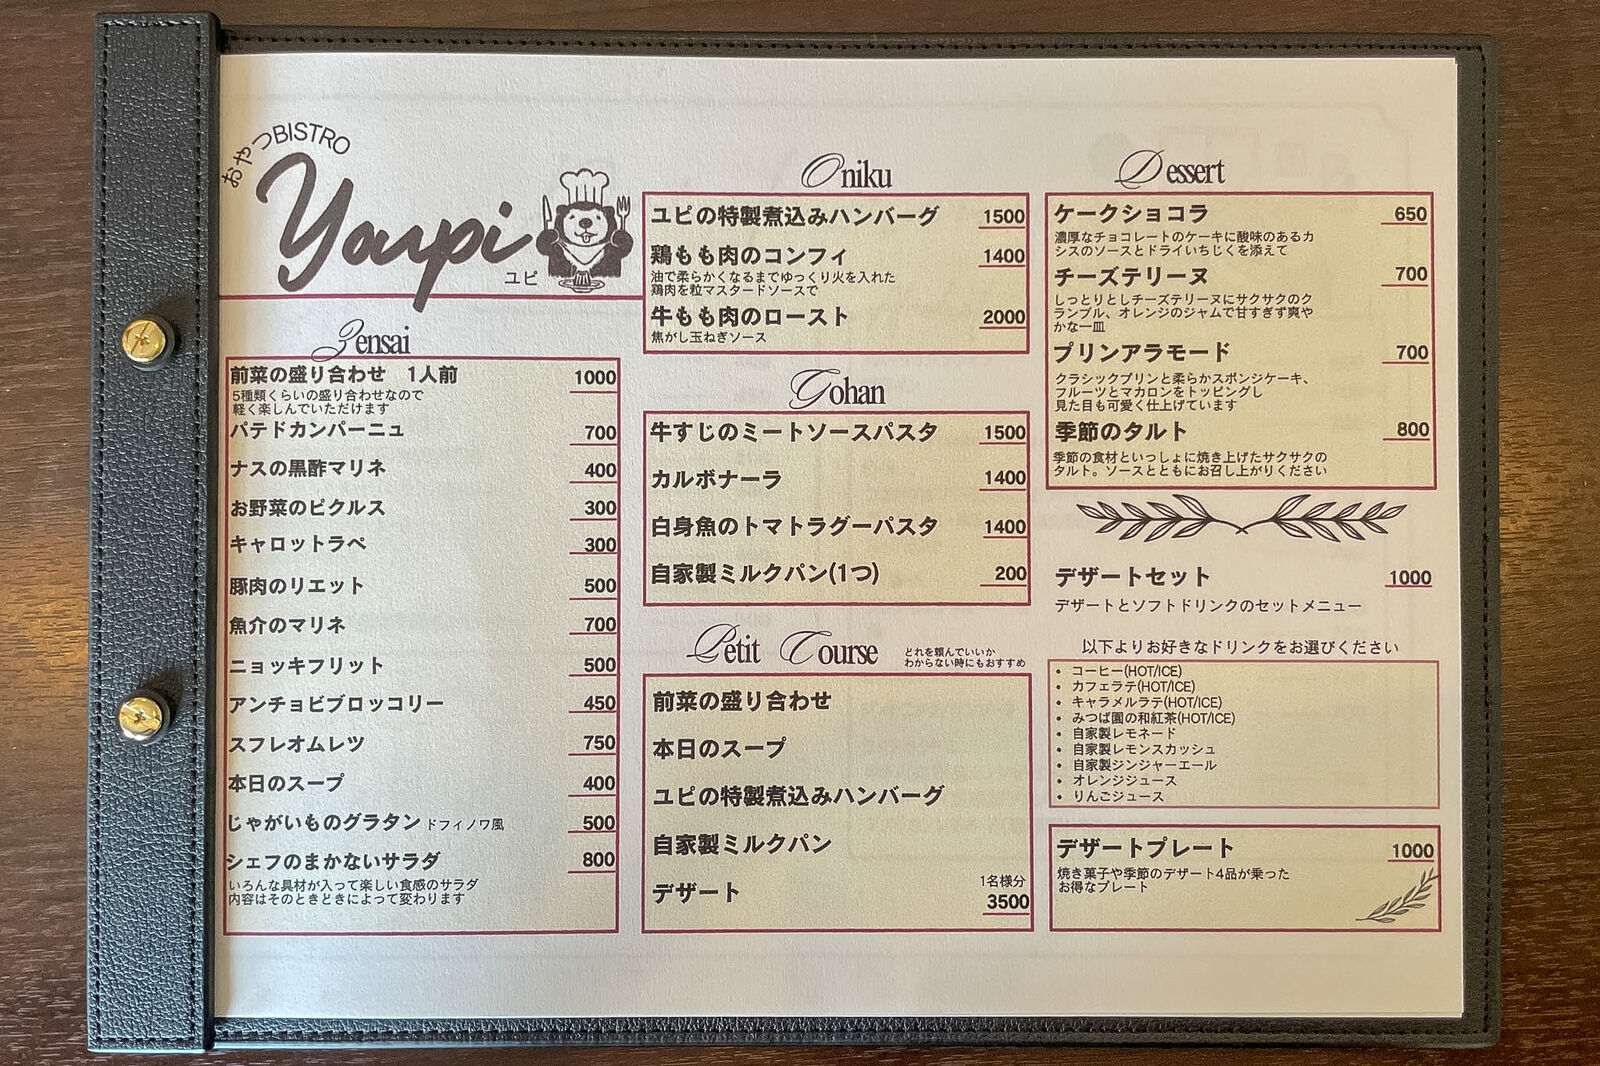 おやつBISTRO
Youpi
ユピ
Zensai
前菜の盛り合わせ 1人前 1000
5種類くらいの盛り合わせなので
軽く楽しんでいただけます
パテドカンパーニュ 700
ナスの黒酢マリネ 400
お野菜のピクルス 300
キャロットラペ 300
豚肉のリエット 500
魚介のマリネ 700
ニョッキフリット 500
アンチョビブロッコリー 450
スフレオムレツ 750
本日のスープ 400
じゃがいものグラタン ドフィノワ風 500
シェフのまかないサラダ 800
いろんな具材が入って楽しい食感のサラダ
内容はそのときどきによって変わります
Oniku
ユピの特製煮込みハンバーグ 1500
鶏もも肉のコンフィ 1400
油で柔らかくなるまでゆっくり火を入れた
鶏肉を粒マスタードソースで
牛もも肉のロースト 2000
焦がし玉ねぎソース
Gohan
牛すじのミートソースパスタ 1500
カルボナーラ 1400
白身魚のトマトラグーパスタ 1400
自家製ミルクパン(1つ) 200
Petit Course
どれを頼んでいいか
わからない時にもおすすめ
前菜の盛り合わせ
本日のスープ
ユピの特製煮込みハンバーグ
自家製ミルクパン
デザート
1名様分
3500
Dessert
ケークショコラ 650
濃厚なチョコレートのケーキに酸味のあるカ
シスのソースとドライいちじくを添えて
チーズテリーヌ 700
しっとりとしチーズテリーヌにサクサクのク
ランブル、オレンジのジャムで甘すぎず爽や
かな一皿
プリンアラモード 700
クラシックプリンと柔らかスポンジケーキ、
フルーツとマカロンをトッピングし
見た目も可愛く仕上げています
季節のタルト 800
季節の食材といっしょに焼き上げたサクサクの
タルト。ソースとともにお召し上がりください
デザートセット 1000
デザートとソフトドリンクのセットメニュー
以下よりお好きなドリンクをお選びください
• コーヒー(HOT/ICE)
• カフェラテ(HOT/ICE)
• キャラメルラテ(HOT/ICE)
• みつば園の和紅茶(HOT/ICE)
• 自家製レモネード
• 自家製レモンスカッシュ
• 自家製ジンジャーエール
• オレンジジュース
• りんごジュース
デザートプレート 1000
焼き菓子や季節のデザート4品が乗った
お得なプレート